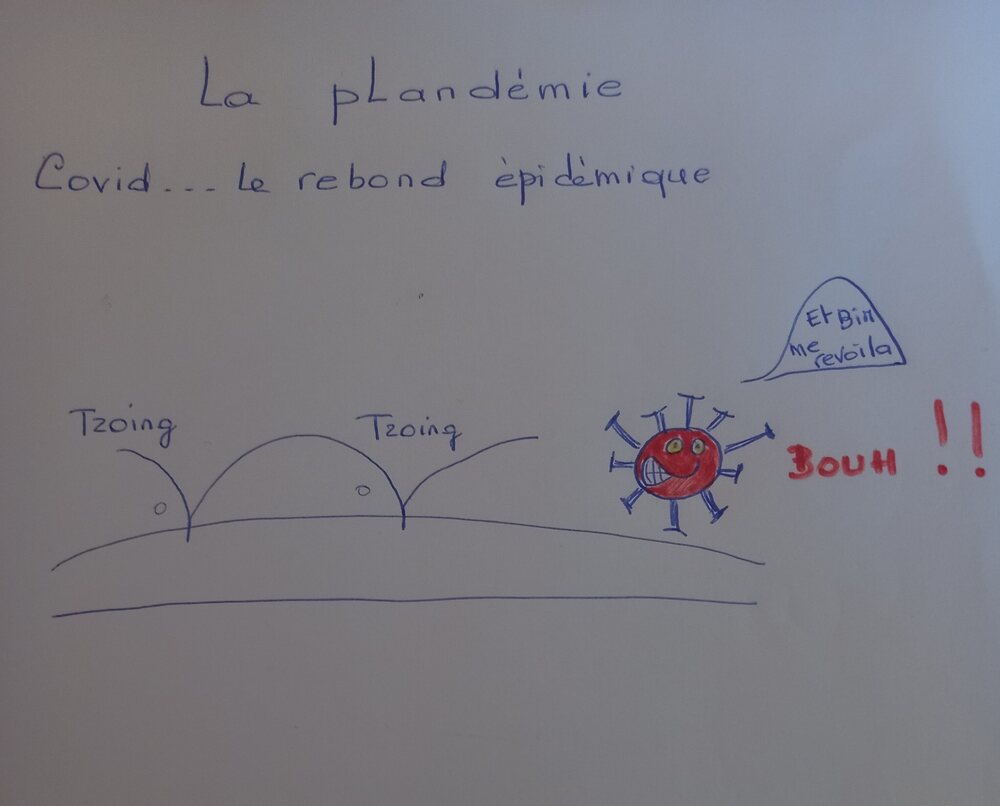 La pLandémie
Covid... Le rebond épidémique
Et Bin
me
revoila
Tzoing
Tzoing
BOUH !!